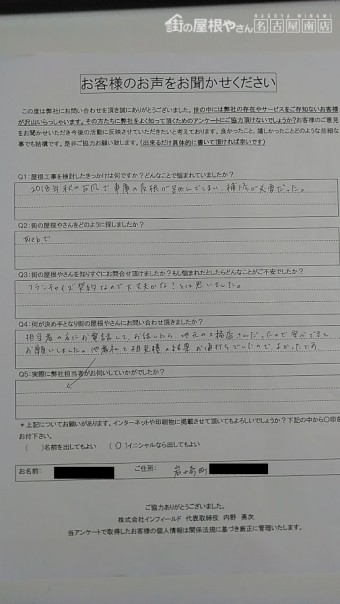 街の屋根やさん
NAGOYA MINAMI
名古屋南店
お客様のお声をお聞かせください
この度は弊社にお問い合わせを頂き誠にありがとうございました。世の中には弊社の存在やサービスをご存知ないお客様
が沢山いらっしゃいます。その方たちに弊社をよく知って頂くためのアンケートにご協力頂けないでしょうか?お客様のご意見
をお聞かせいただき今後の活動に反映させていただきたいと考えております。良かったこと、嬉しかったことどのような些細な
事でも結構です。是非ご協力お願い致します。(出来るだけ具体的に書いて頂ければ幸いです)
Q1:屋根工事を検討したきっかけは何ですか?どんなことで悩まれていましたか?
2018年秋の台風で車庫の屋根が飛んでしまい、補修が必要だった。
Q2:街の屋根やさんをどのように探しましたか?
Webで
Q3:街の屋根やさんを知りすぐにお問合せ頂けますか?もし悩まれたとしたらどんなことがご不安でしたか?
フランチャイズ契約なので大丈夫かな?とは思いました。
Q4:何が決め手となり街の屋根やさんにお問い合わせ頂きましたか?
担当者の方にお電話して、お話したら、地元の工務店さんだったので安心できまし
お願いしました。他者和と相見積の結果お値打ちでしたので、よかったです。
Q5:実際に弊社担当者がお伺いしていかがでしたか?
*上記についてお願いがあります。インターネットや印刷物に掲載させて頂いてもよろしいでしょうか?下記の中から〇印を
お付下さい。
( )名前を出してもよい (〇)イニシャルなら出してもよい
お名前: ご住所:
ご協力ありがとうございました。
株式会社インフィールド 代表取締役 内野 勇次
当アンケートで取得したお客様の個人情報は関係法規に基づき厳正に管理いたします。